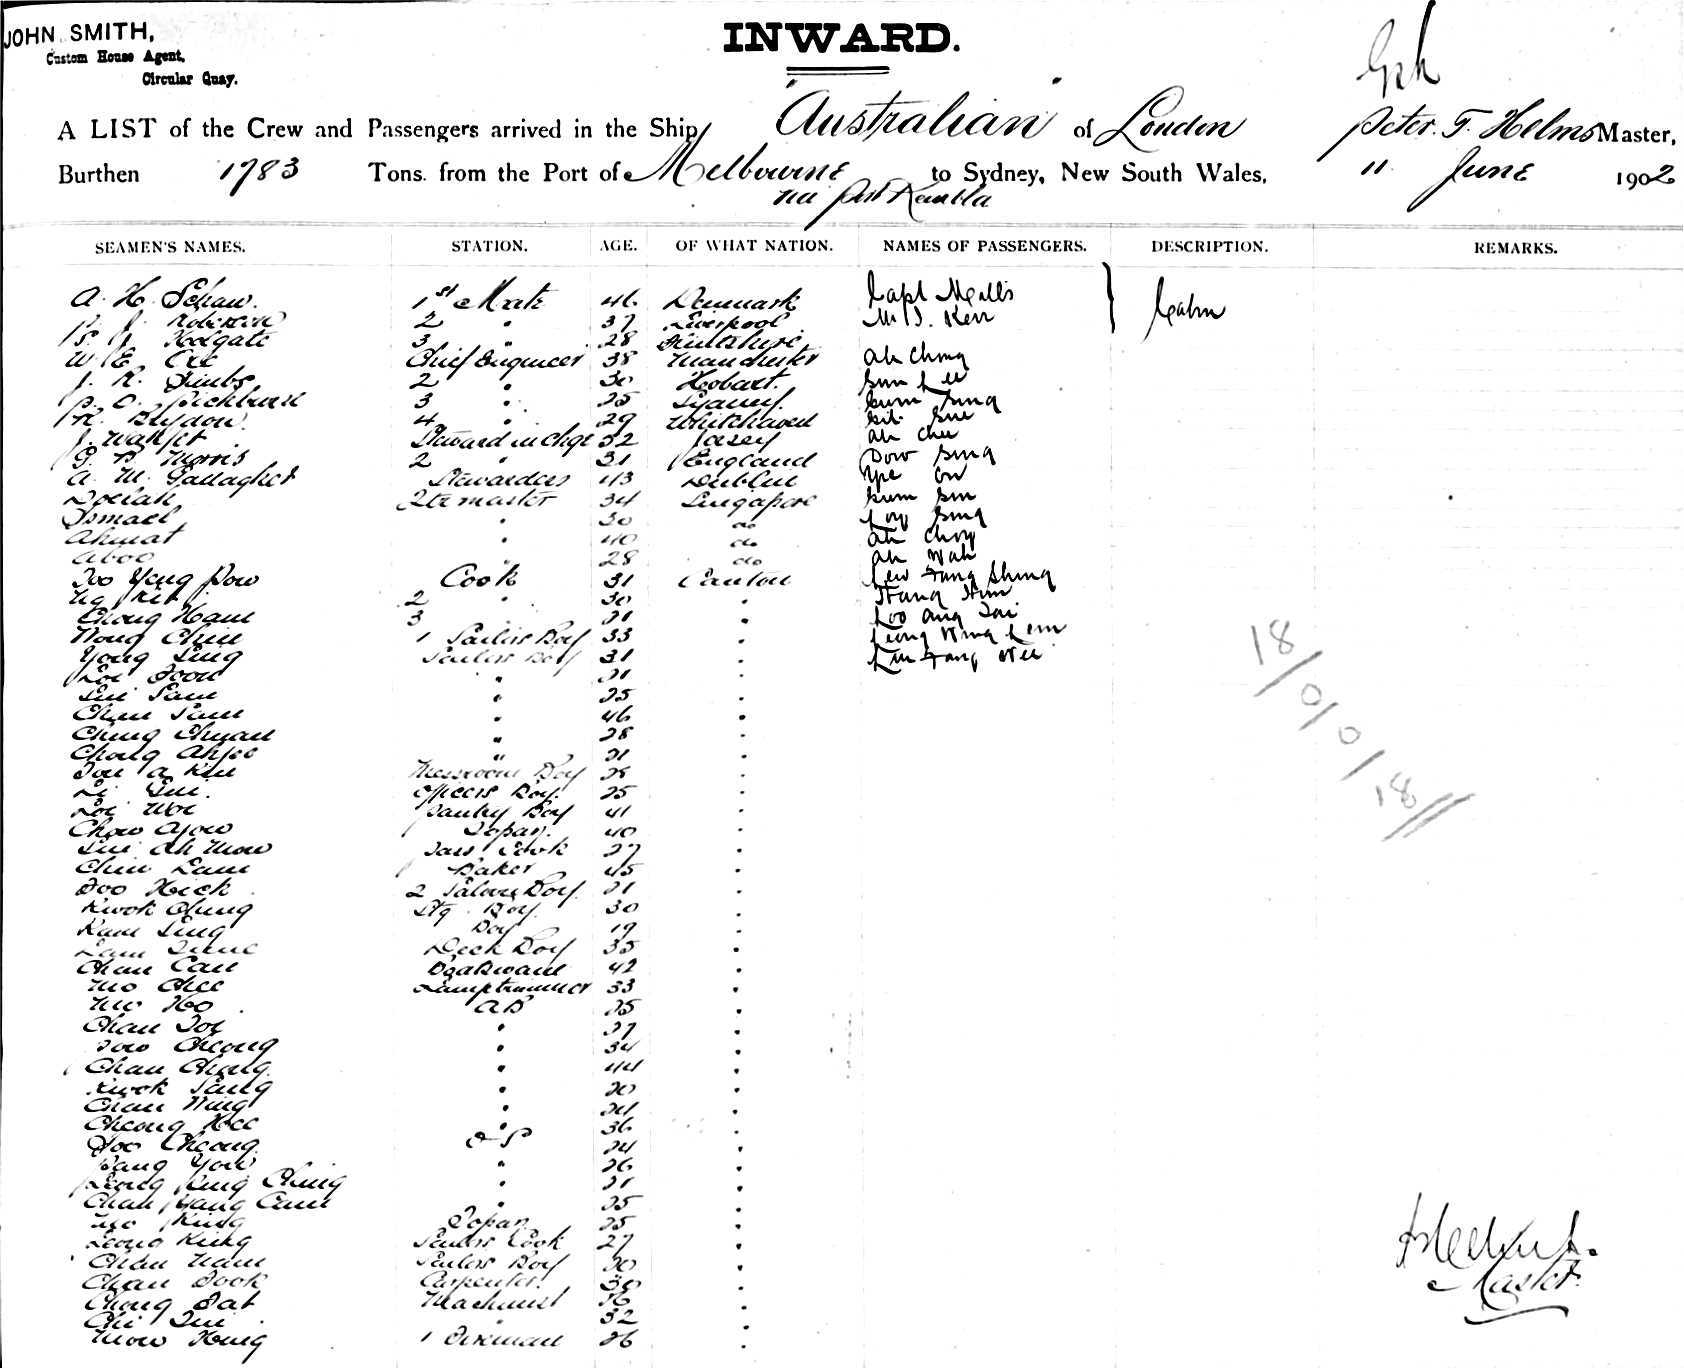 JOHN SMITH,
Custom House Agent,
Circular Quay.
INWARD.
A LIST of the Crew and Passengers arrived in the Ship Australian of London Peter. T. Helms Master,
Burthen 1783 Tons. from the Port of Melbourne to Sydney, New South Wales, 11 June 1902
via Port Kembla
SEAMEN'S NAMES. STATION. AGE. OF WHAT NATION. NAMES OF PASSENGERS. DESCRIPTION. REMARKS.
A. H. Schaw. 1st Mate 46 Denmark Capt Mills
J. Robertson 2 " 37 Liverpool Kerr Cabin
Holgate 3 " 28
W. E. Cee Chief Engineer 38 Manchester Ah Chong
J. R. 2 " 30 Hobart. Sun Lee
3 " 25 Sydney Sum Sing
R. Brydon. 4 " 29 Whitehaven Sue
J. Steward in chge 32 Jersey Ah Chee
G. B. Morris 2 " 31 England Dow Sing
A. M. Gallagher Stewardess 43 Dublin Yee On
Doelah Qtr master 34 Singapore Sum Sin
Ismael " 30 do Loy Sing
Ahmat " 40 do Ah Choy
Aboo " 28 do Ah Wah
Too Yong Pow Cook 31 Canton Lew Fang Shing
Ng Kit 2 " 30 " Hang Him
Chong Ham 3 " 21 " Loo Ang Tai
Wong Chin 1 Sailors Boy 33 " Leong Wing Lem
Yong Ling Sailors Boy 31 " Lin Fang Wee
Loi Toon " 21 "
Lui Sam " 25 "
Chan Sam " 46 "
Ching Chuan " 28 "
Chong Ahjee " 21 "
Tou A Kin Messroom Boy 28 "
Li Lui. Officers Boy. 25 "
Loi Woi Pantry Boy 41 "
Chow Ayow Topan. 40 "
Lui Ah Mow Cook 27 "
Chin Lam Baker 45 "
Too Hick 2 Saloon Boy 21 "
Kwok Chung Boy. 30 "
Kam Ling Boy 19 "
Lam Deck Boy 35 "
Chan Can Boatswain 42 "
Mo Chee Lamptrimmer 33 "
Mo Ho AB 25 "
Chan Toy " 27 "
Tow Cheong " 34 "
Chan Chung " 44 "
Kwok Sang " 20 "
Chan Ning " 24 "
Cheong Hee " 36 "
Hoo Cheong OS 24 "
Pang Yow " 26 "
Leong King Ching " 21 "
Chan Yang Cam " 25 "
Mo King Topan 25 "
Leong King Sailors Cook 27 "
Chan Nam Sailors Boy 20 "
Chan Fook Carpenter. 30 "
Chong Fat Machinist 36 "
Chi Lui " 32 "
Mow Hing 1 Fireman 26 "
18/0/0/18//
Master.